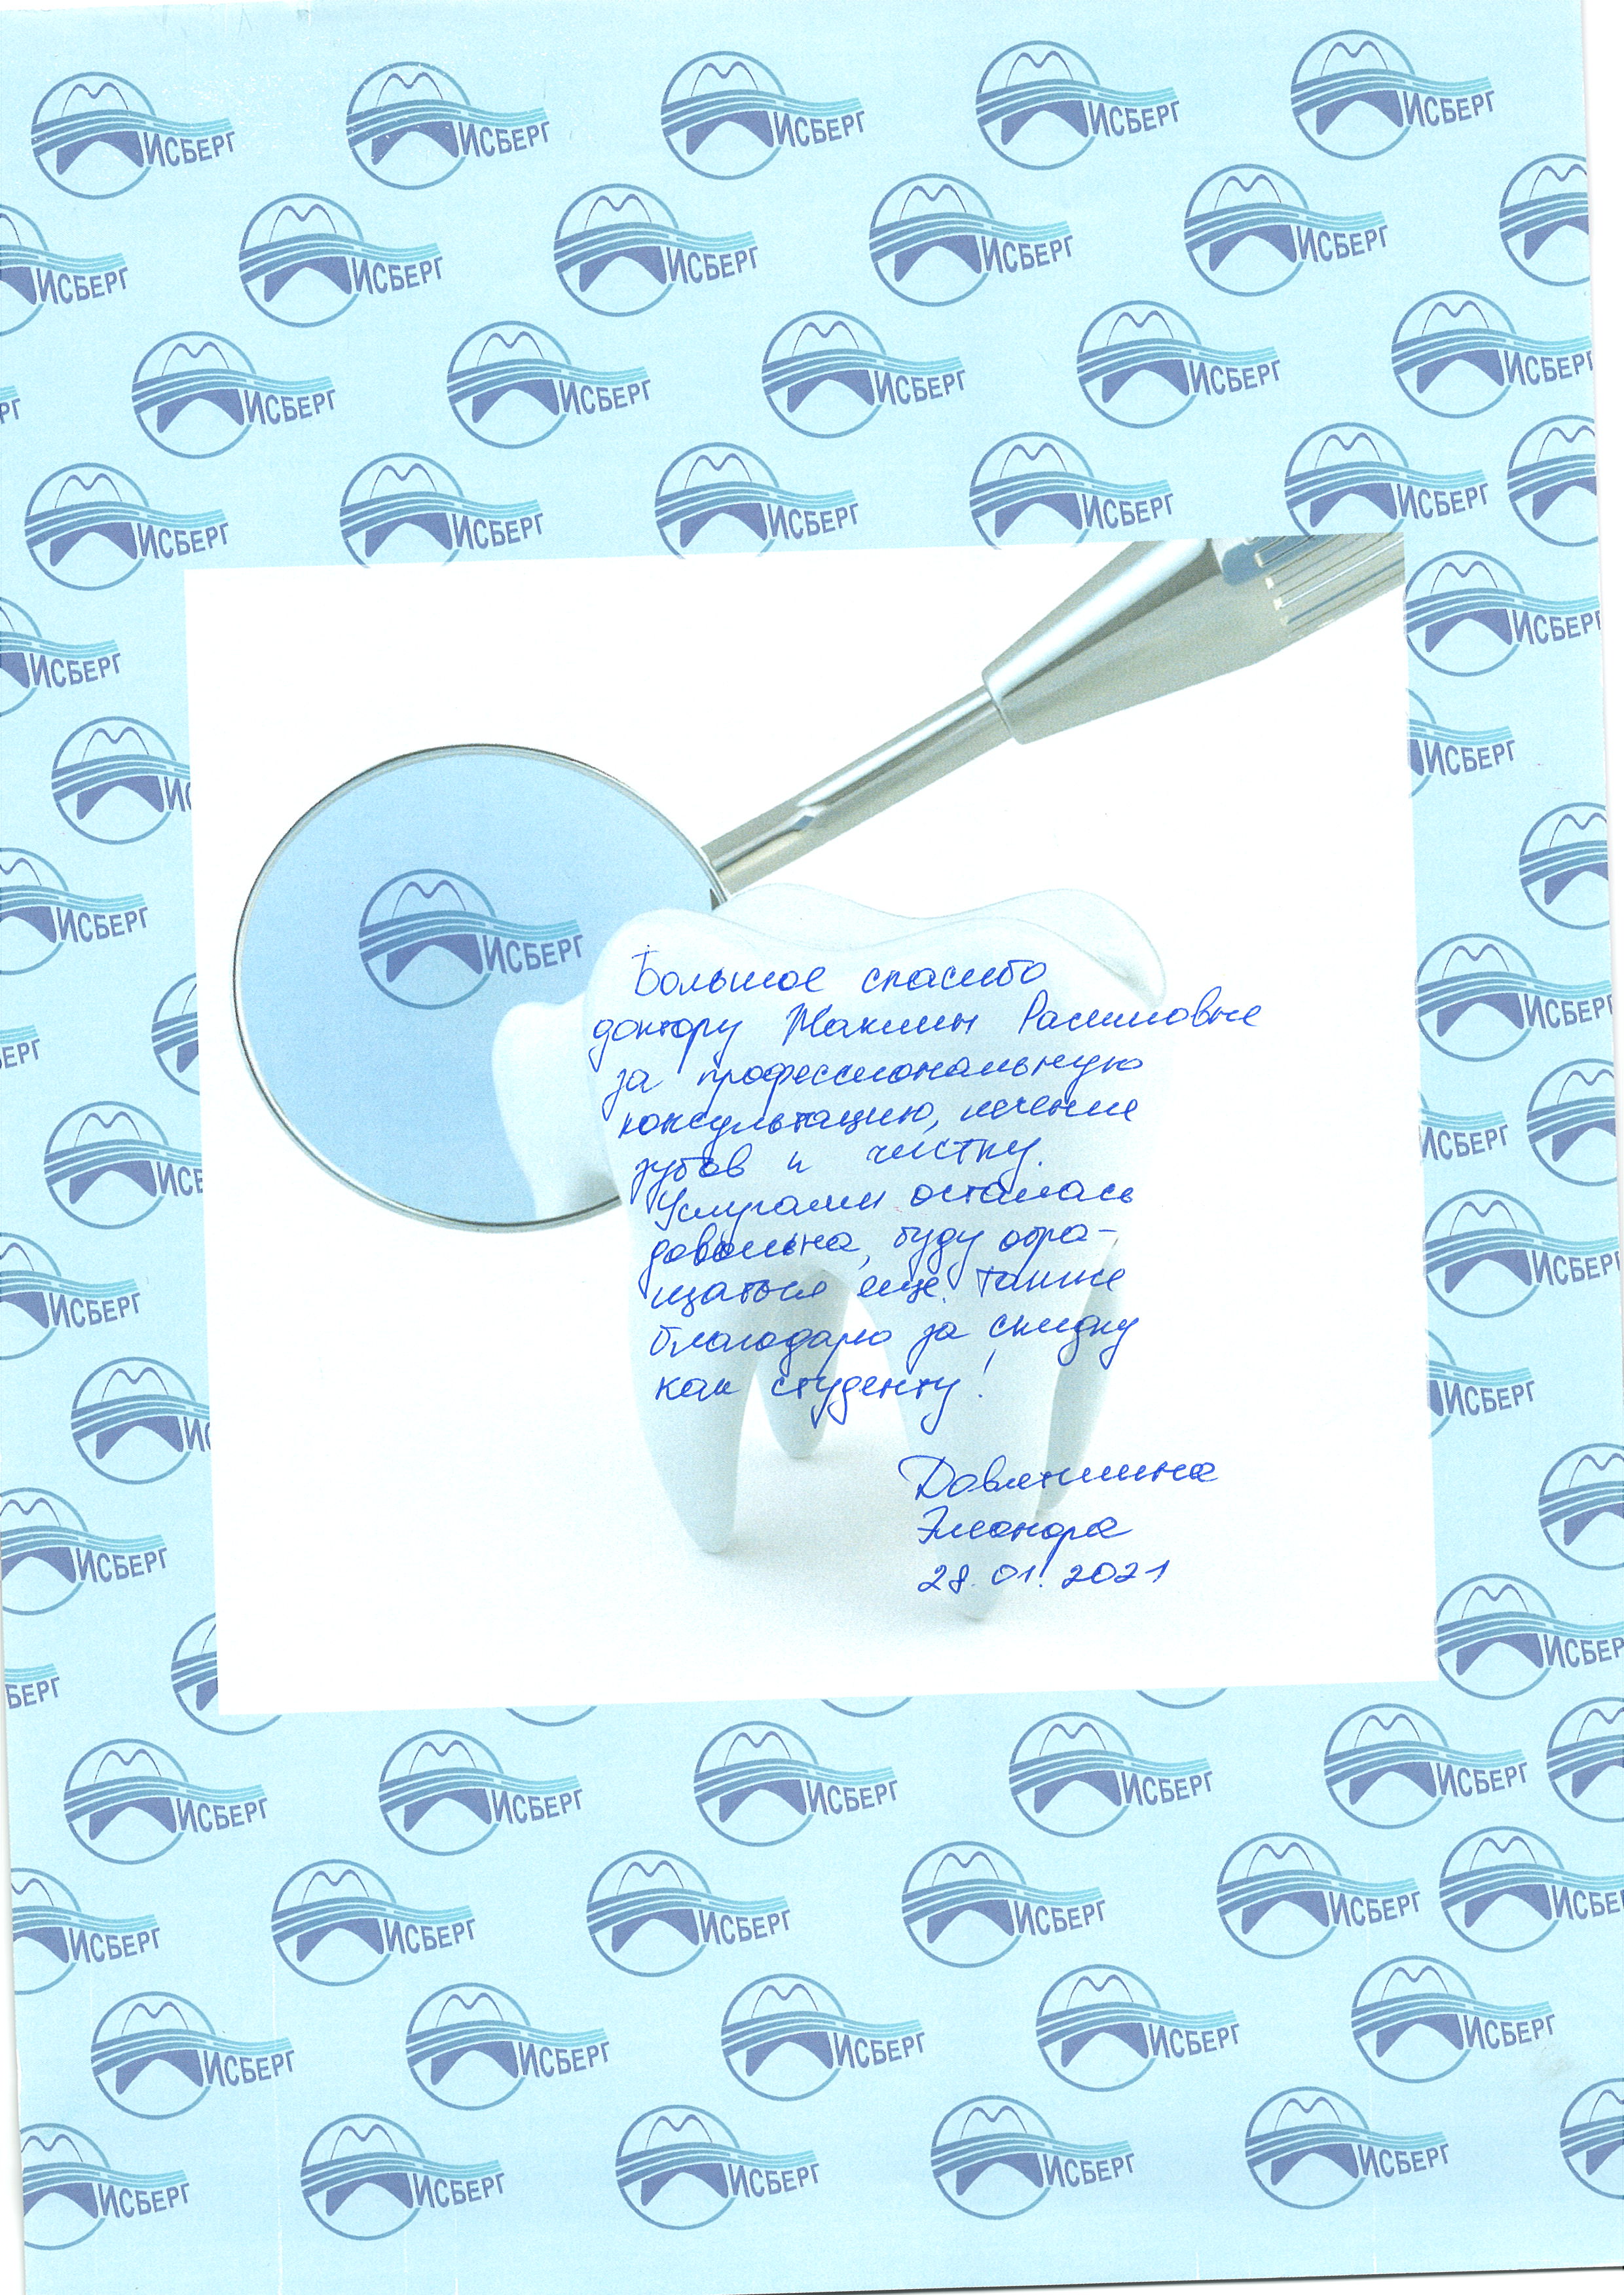 ИСБЕРГ
Большое спасибо
доктору Жаклин Расимовне
за профессиональную
консультацию, лечение
зубов и чистку.
Услугами осталась
довольна, буду обра-
щаться еще. Также
благодарю за скидку
как студенту!
Довлетшина
Элеонора
28.01.2021